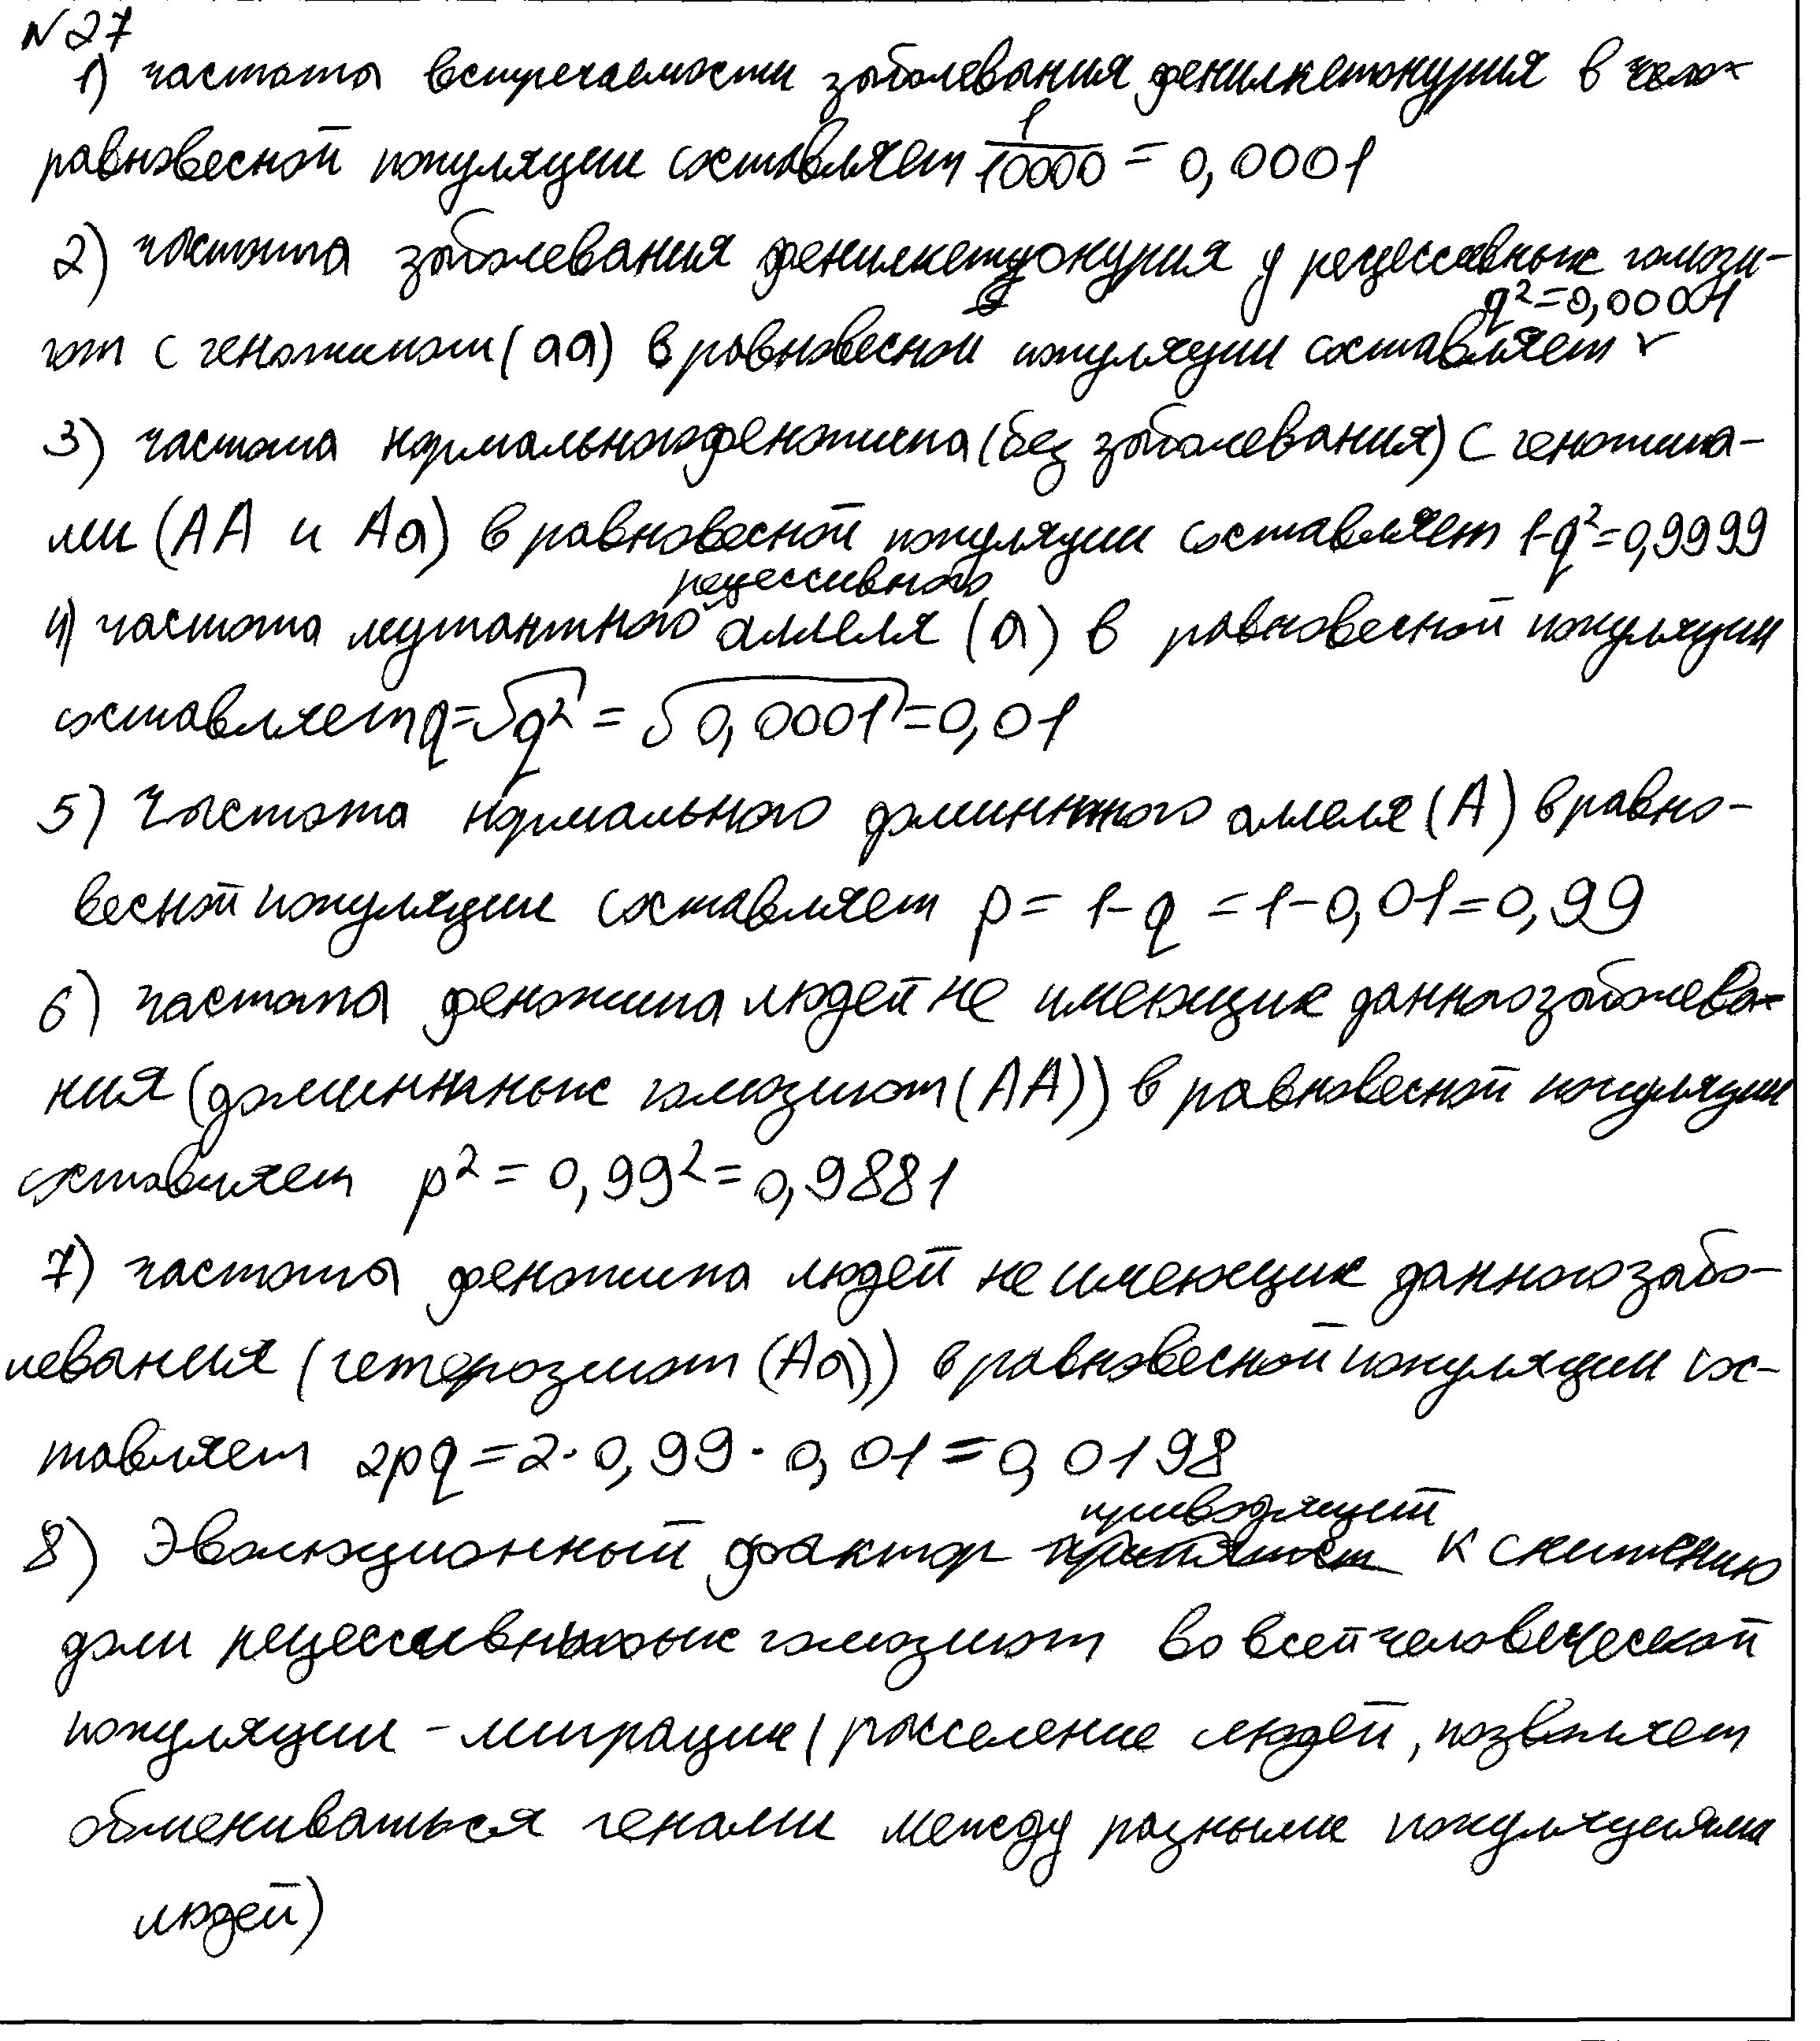 N27
1) частота встречаемости заболевания фенилкетонурия в
равновесной популяции составляет 1/10000 = 0,0001
2) частота заболевания фенилкетонурия у рецессивных гомози-
q²=0,0001
гот с генотипом (аа) в равновесной популяции составляет
3) частота нормального фенотипа (без заболевания) с генотипа-
ми (АА и Аа) в равновесной популяции составляет 1-q²=0,9999
рецессивного
4) частота мутантного аллеля (а) в равновесной популяции
составляет q=√q² = √0,0001=0,01
5) Частота нормального доминтного аллеля (А) в равно-
весной популяции составляет p= 1-q =1-0,01=0,99
6) частота фенотипа людей не имеющих данного заболева-
ния (доминтных гомозигот (АА)) в равновесной популяции
составляет p²= 0,99²=0,9881
7) частота фенотипа людей не имеющих данного забо-
левания (гетерозигот (Аа)) в равновесной популяции сос-
тавляет 2pq=2·0,99·0,01=0,0198
приводящий
8) Эволюционный фактор к снижению
доли рецессивных гомозигот во всей человеческой
популяции - миграции (расселение людей, позволяет
обмениваться генами между разными популяциями
людей)